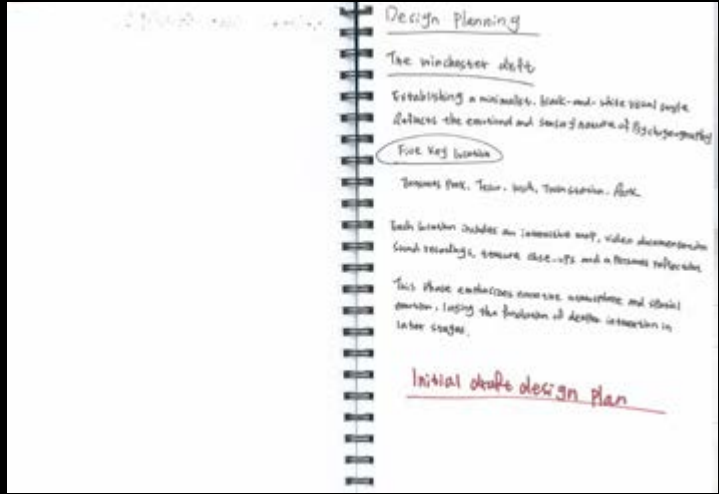 Design Planning
The winchester drift
Establishing a minimalist, black-and-white visual style
Reflects the emotional and sensory nature of Psychogeography
Five Key location
Park, Tesco, Train station, Park.
Each location includes an interactive map, video documentation
sound recordings, texture close-ups and a Personal reflection
This phase emphasizes emotive atmosphere and spatial
emotion, laying the foundation of deeper interaction in
later stages.
Initial draft design plan